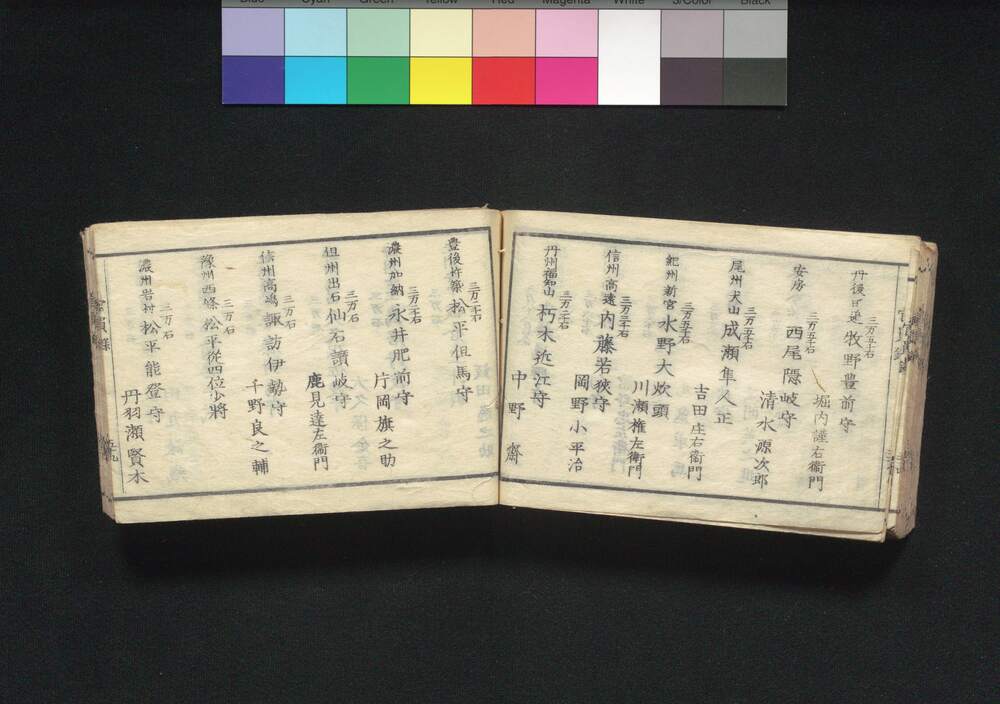 Blue Cyan Green Yellow Red Magenta White 3/Color Black
丹後田邊 三万五千石 牧野豊前守
堀内謹右衞門
安房 三万五千石 西尾隠岐守
清水源次郎
尾州犬山 三万五千石 成瀬隼人正
吉田庄右衞門
紀州新宮 三万五千石 水野大炊頭
川瀬権左衞門
信州高遠 三万三千石 内藤若狹守
岡野小平治
丹州福知山 三万二千石 朽木近江守
中野齋
豊後杵築 三万二千石 松平但馬守
濃州加納 三万二千石 永井肥前守
片岡旗之助
但州出石 三万石 仙石讃岐守
鹿見達左衞門
信州高嶋 三万石 諏訪伊勢守
千野良之輔
豫州西條 三万石 松平従四位少將
濃州岩村 三万石 松平能登守
丹羽瀬賢木